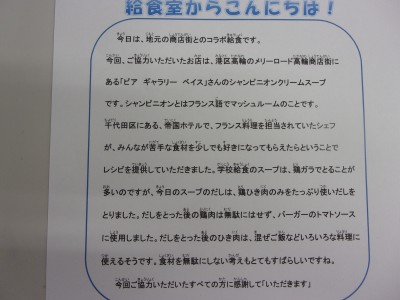 給食室からこんにちは！
今日は、地元の商店街とのコラボ給食です。
今回、ご協力いただいたお店は、港区高輪のメリーロード高輪商店街に
ある「ピア ギャラリー ベイス」さんのシャンピニオンクリームスープ
です。シャンピニオンとはフランス語でマッシュルームのことです。
千代田区にある、帝国ホテルで、フランス料理を担当されていたシェフ
が、みんなが苦手な食材を少しでも好きになってもらえたらということで
レシピを提供していただきました。学校給食のスープは、鶏ガラでとることが
多いのですが、今日のスープのだしは、鶏ひき肉のみをたっぷり使いだしを
とりました。だしをとった後の鶏肉は無駄にはせず、バーガーのトマトソース
に使用しました。だしをとった後のひき肉は、混ぜご飯などいろいろな料理に
使えるそうです。食材を無駄にしない考えもとてもすばらしいですね。
今回ご協力いただいたすべての方に感謝して「いただきます」